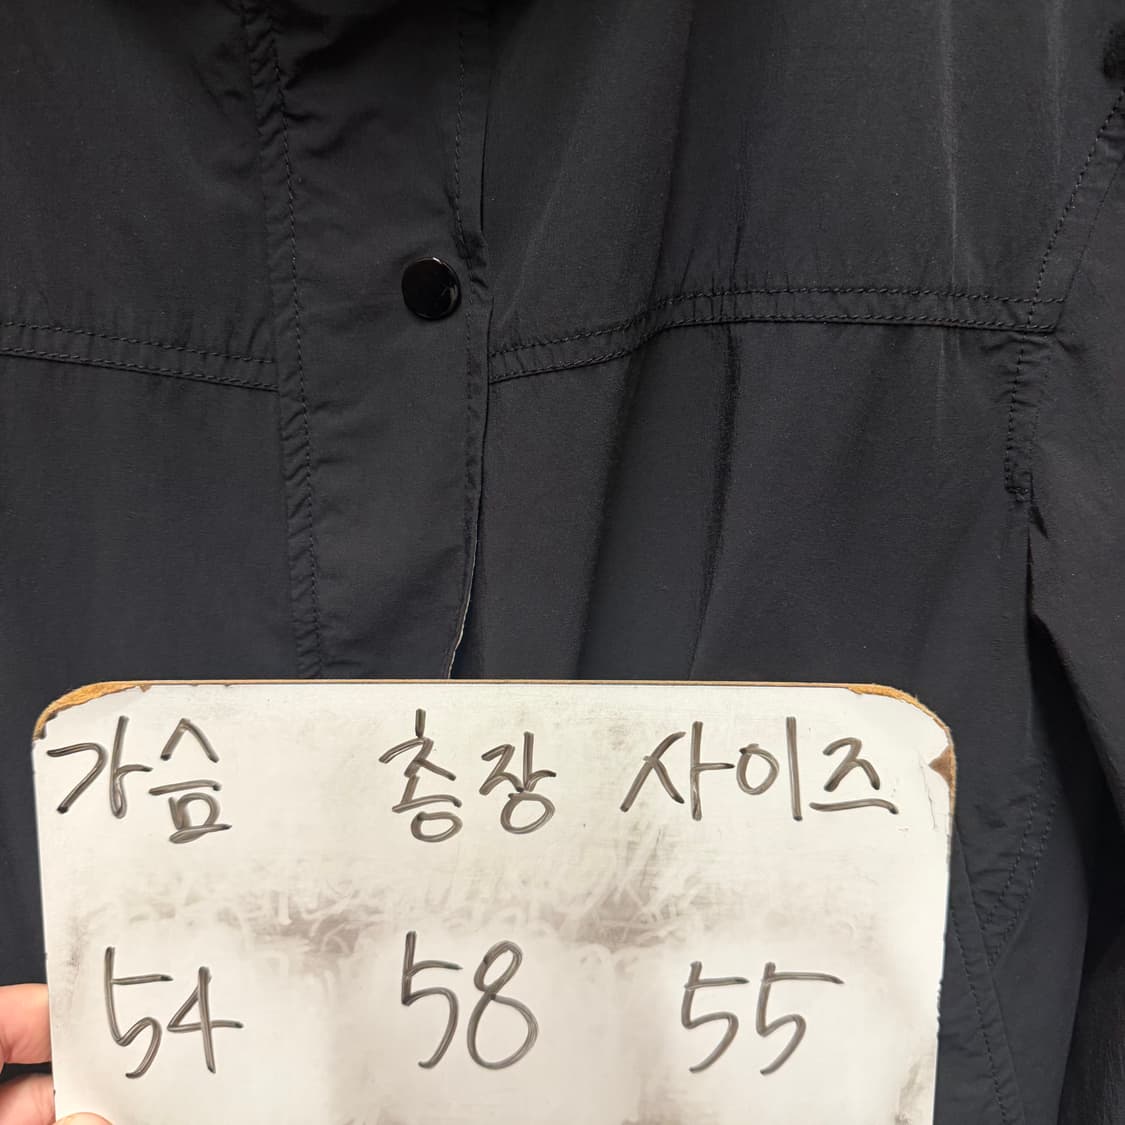 가슴 총장 사이즈
54 58 55